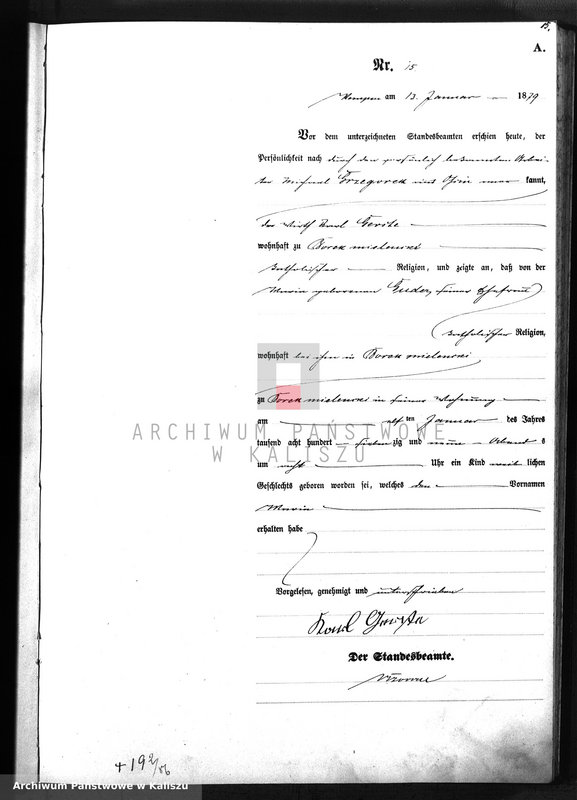 15.
A.
Nr. 15
Kempen am 13. Januar 1879
Vor dem unterzeichneten Standesbeamten erschien heute, der
Persönlichkeit nach durch den persönlich bekannten Arbei-
ter Michael Grzegorek aus Osin kannt,
der Wirth Karl
wohnhaft zu Borek mielencki
katholischer Religion, und zeigte an, daß von der
Maria geborenen Guder, seiner Ehefrau
katholischer Religion,
wohnhaft bei ihm in Borek mielencki
zu Borek mielencki in seiner Wohnung
am elf ten Januar des Jahres
tausend acht hundert sieben zig und neun Abend s
um acht Uhr ein Kind weib lichen
Geschlechts geboren worden sei, welches den Vornamen
Maria
erhalten habe
Vorgelesen, genehmigt und unterschrieben
Karl
Der Standesbeamte.
ARCHIWUM PAŃSTWOWE
W KALISZU
+ 192/56
Archiwum Państwowe w Kaliszu